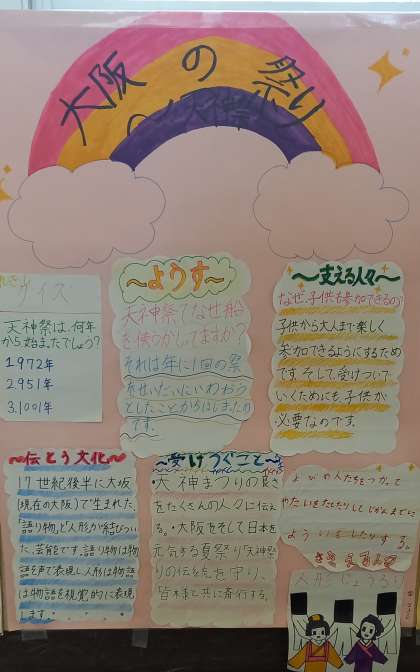 大阪の祭り
〜天神祭〜
クイズ
天神祭は、何年
から始まったでしょう?
1 972年
2 951年
3.1001年
〜ようす〜
天神祭でなぜ船
を使うがしてますか?
それは年に1回の祭
をせいだいにいわおう
としたことからはじましたの
です。
〜支える人々〜
なぜ、子供も参加できるの?
子供から大人まで楽しく
参加できるようにするため
です。そして、受けついで
いくためにも、子供が
必要なのです。
〜伝とう文化〜
17世紀後半に大坂
(現在の大阪)で生まれた、
「語り物」と人形が結びつい
た、芸能です。語り物は物
語を声で表現し人形は物語
は物語を視覚的に表現
します。
〜受けつぐこと〜
・天神まつりの良さ
をたくさんの人々に伝え
る。・大阪をそして日本を
元気する夏祭り「天神祭」
りの伝統を守り、
皆木までと共に斎行する。
の人たちをつかって
やたいをたしたりして
よういをしたりする。
人形じょうるり